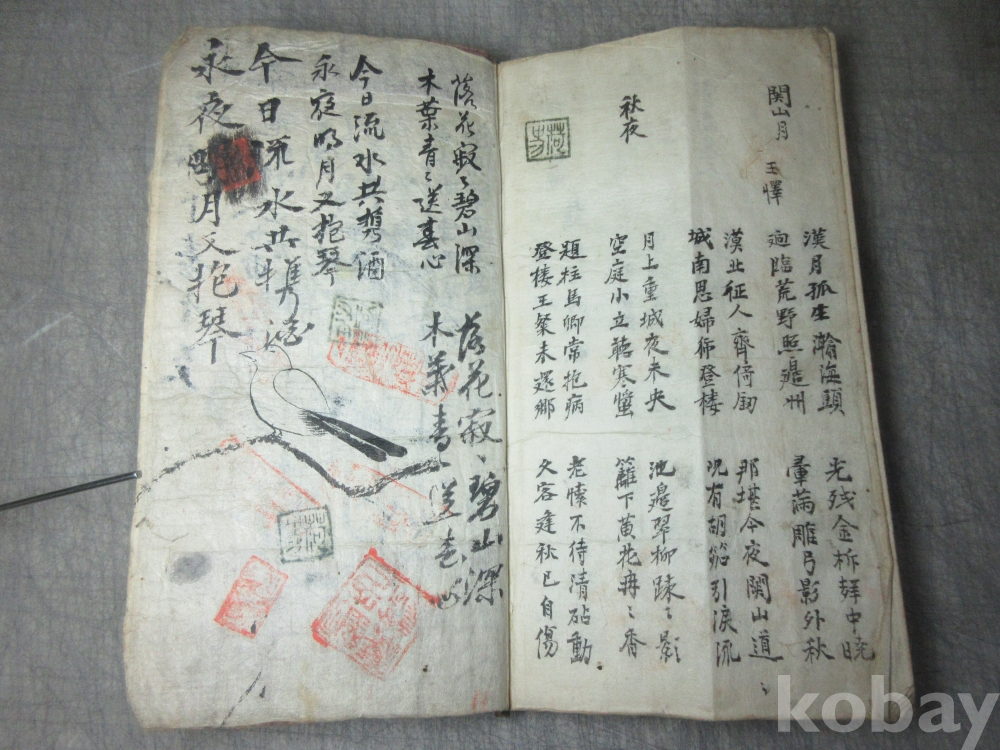 関山月
王懌
漢月孤生瀚海頭
迥臨荒野照邉州
光残金柝声中暁
暈滿雕弓影外秋
漠北征人齊倚劎
城南思婦獨登楼
那堪今夜関山道
况有胡笳引淚流
秋夜
月上重城夜未央
空庭小立聴寒螿
池邉翠柳踈〻影
籬下黄花冉〻香
題柱馬卿常抱病
登楼王粲未還郷
老懐不待清砧動
久客逢秋已自傷
落花寂〻碧山深
木葉青〻送春心
今日流水共携酒
永夜明月又抱琴
落花寂〻碧山深
木葉青〻送春心
今日流水共携酒
永夜明月又抱琴
kobay